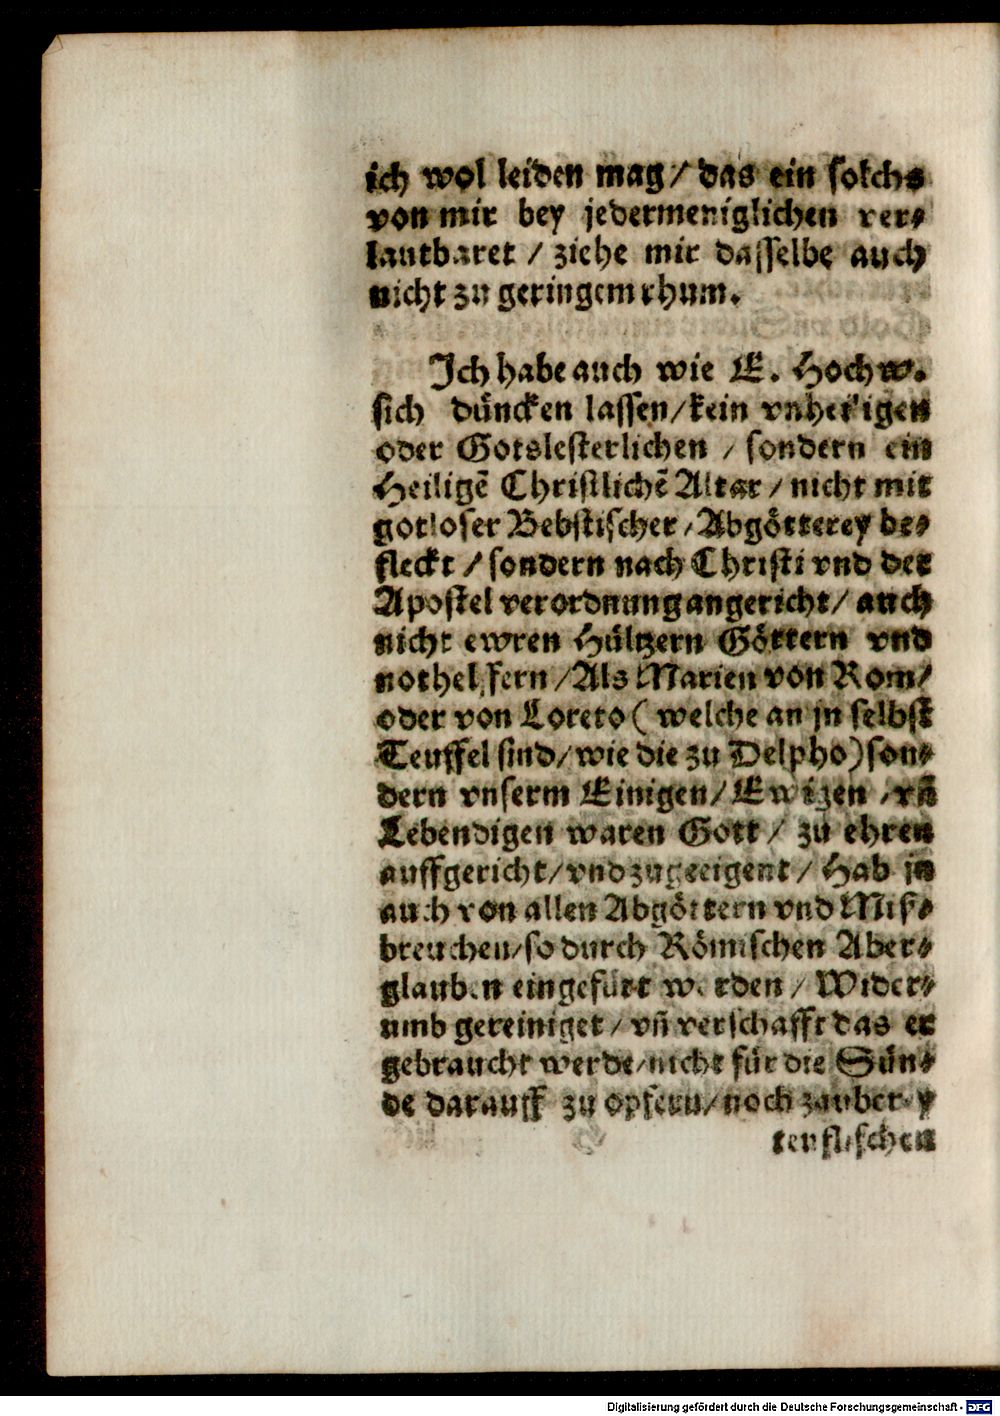 ich wol leiden mag / das ein solchs
von mir bey jedermeniglichen ver⸗
lautbaret / ziehe mir dasselbe auch
nicht zu geringem rhum.
Ich habe auch wie E. Hochw.
sich düncken lassen / kein vnheiligen
oder Gotslesterlichen / sondern ein
Heiligẽ Christlichẽ Altar / nicht mit
gotloser Bebstischer / Abgötterey be⸗
fleckt / sondern nach Christi vnd der
Apostel verordnung angericht / auch
nicht ewren Hültzern Göttern vnd
nothelffern / Als Marien von Rom /
oder von Loreto ( welche an jn selbst
Teuffel sind / wie die zu Delpho ) son⸗
dern vnserm Einigen / Ewigen / vñ
Lebendigen waren Gott / zu ehren
auffgericht / vnd zugeeigent / Hab jn
auch von allen Abgöttern vnd Miß⸗
breuchen / so durch Römischen Aber⸗
glauben eingefürt worden / Wider⸗
umb gereiniget / vñ verschafft das er
gebraucht werde / nicht für die Sün⸗
de darauff zu opfern / noch zauberey
teuflischen
Digitalisierung gefördert durch die Deutsche Forschungsgemeinschaft - DFG